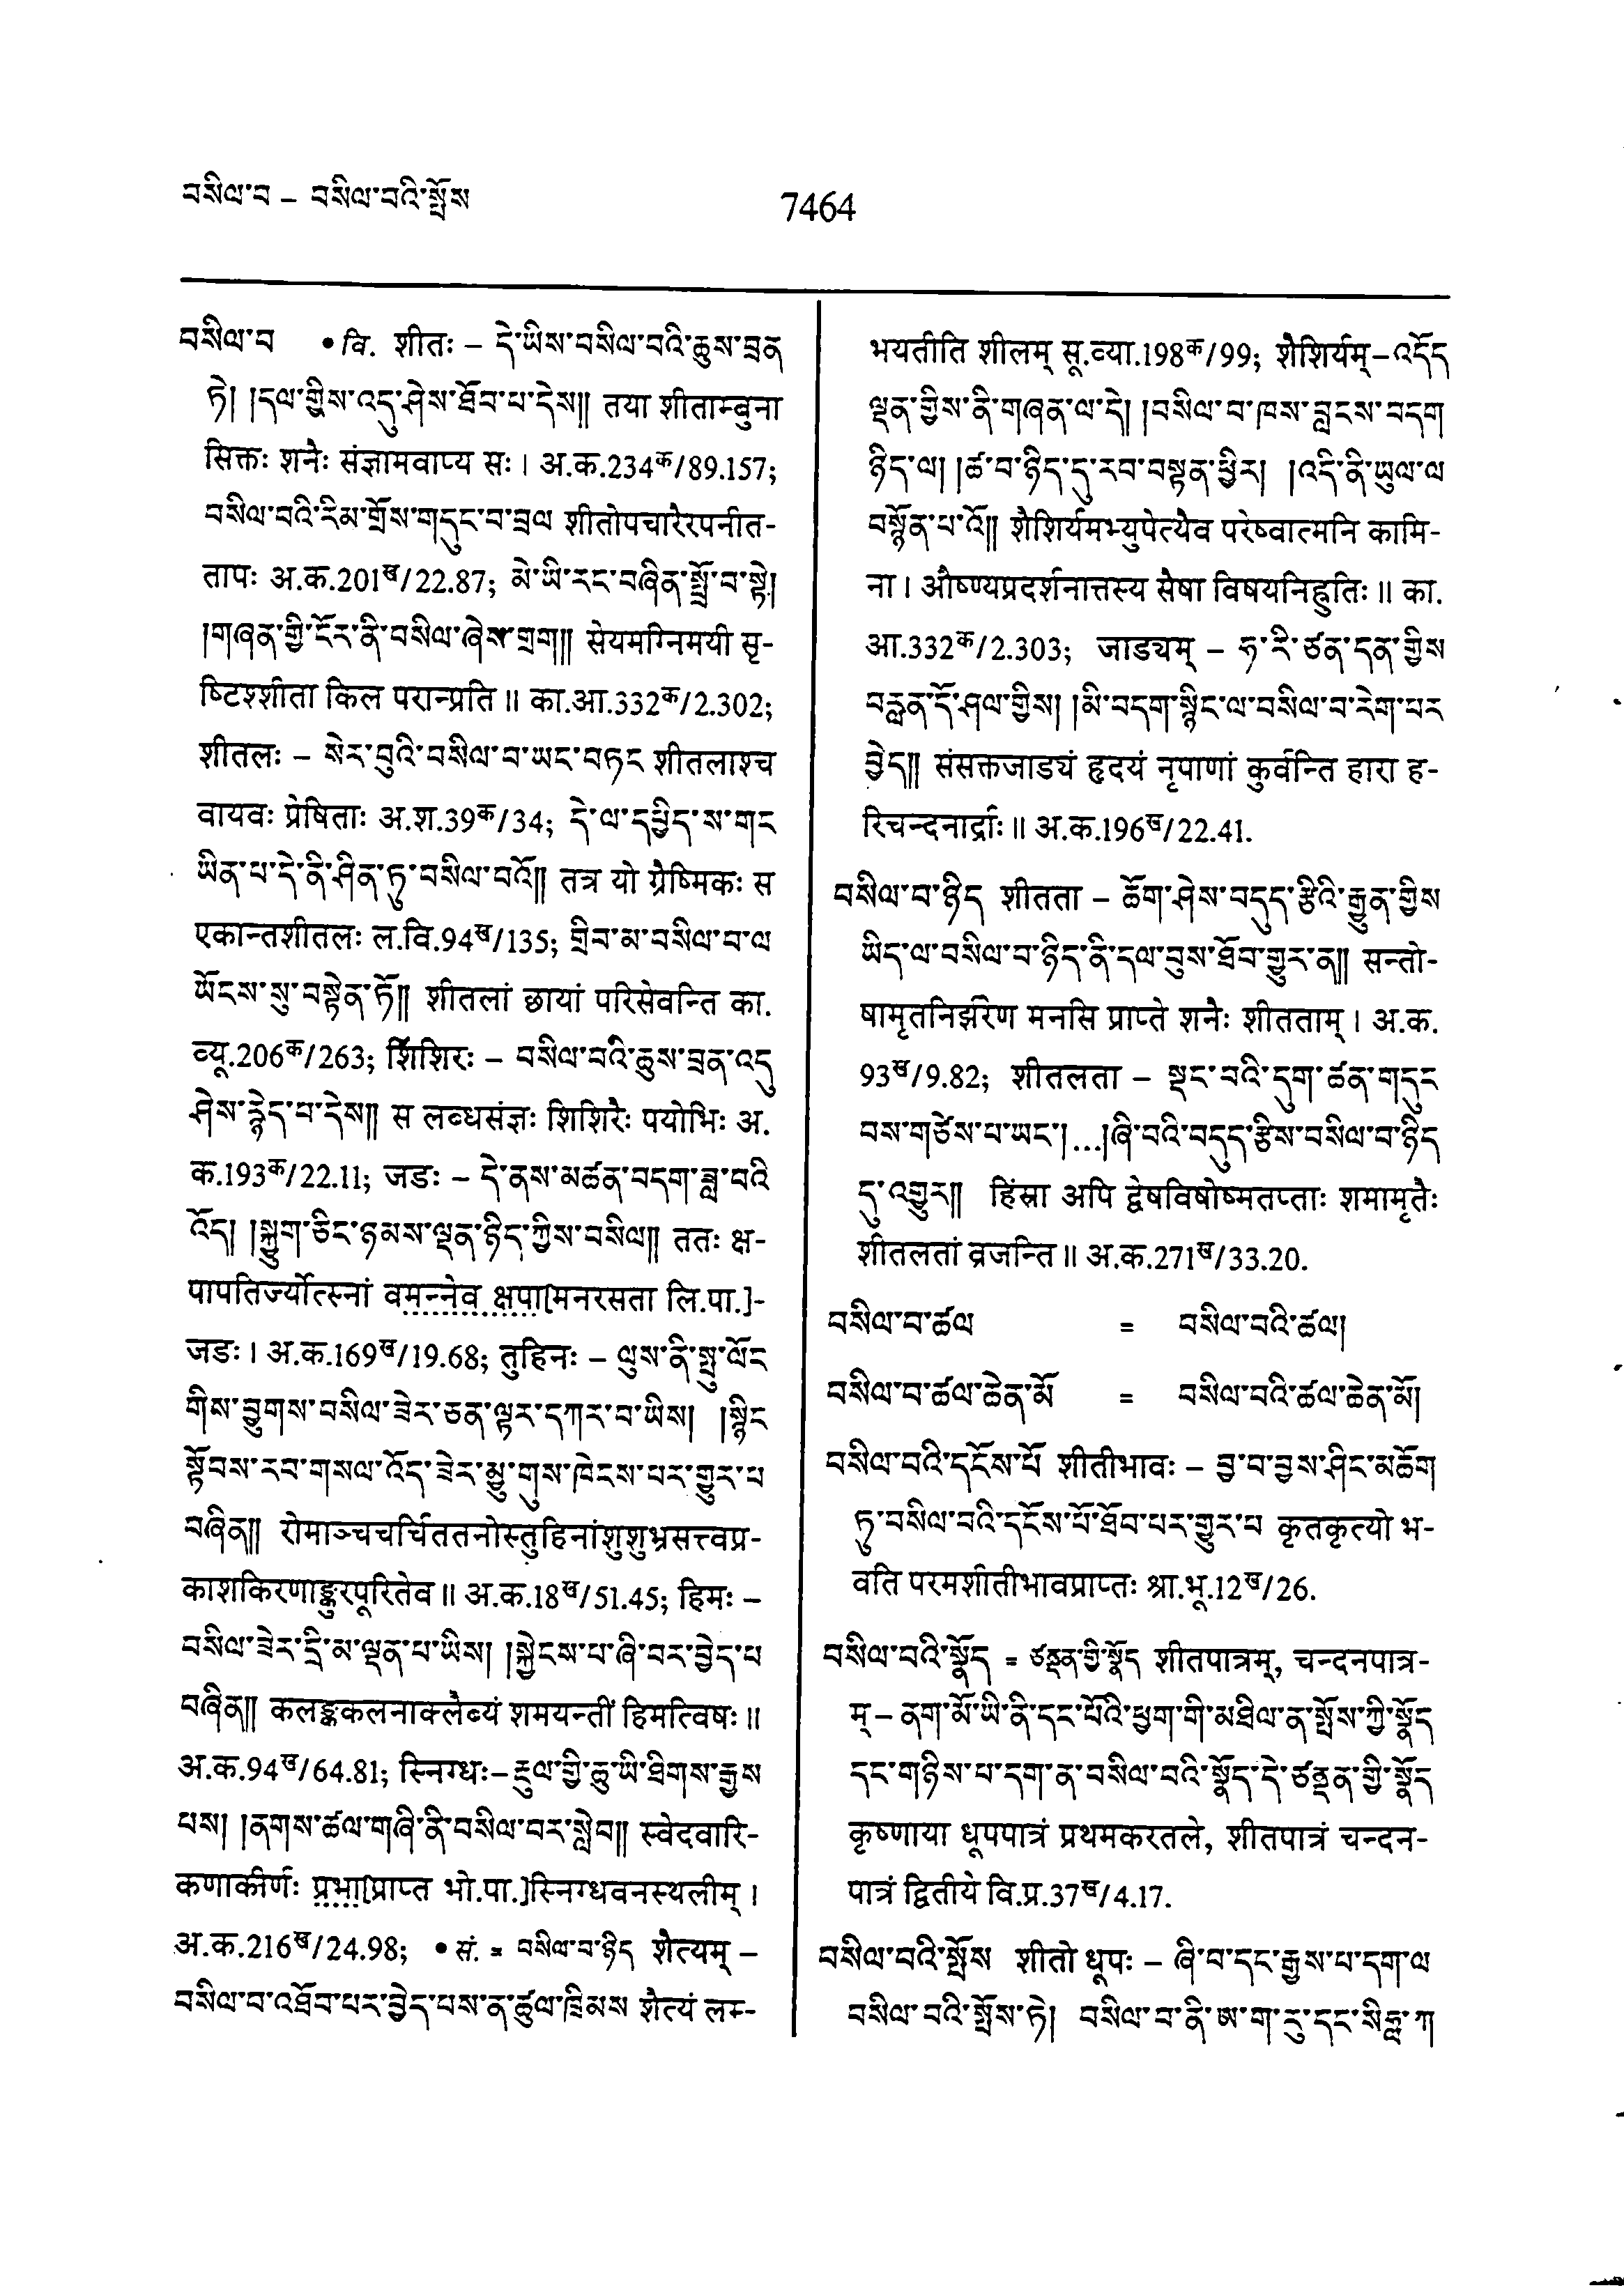 བསིལ་བ – བསིལ་བའི་སྤོས
7464
བསིལ་བ • वि. शीतः – དེ་ཡིས་བསིལ་བའི་ཆུས་བྲན
ཏེ། །དལ་གྱིས་འདུ་ཤེས་ཐོབ་པ་དེས།། तया शीताम्बुना
सिक्तः शनैः संज्ञामवाप्य सः । अ.क.234क/89.157;
བསིལ་བའི་རིམ་གྲོས་གདུང་བ་བྲལ शीतोपचारैरपनीत-
तापः अ.क.201ख/22.87; མེ་ཡི་རང་བཞིན་སྤྲོ་བ་སྟེ།
།གཞན་གྱི་ངོར་ནི་བསིལ་ཞེས་གྲག།། सेयमग्निमयी सृ-
ष्टिश्शीता किल परान्प्रति ॥ का.आ.332क/2.302;
शीतलः – སེར་བུའི་བསིལ་བ་ཡང་བཏང शीतलाश्च
वायवः प्रेषिताः अ.श.39क/34; དེ་ལ་དབྱིད་ས་གང
ཡིན་པ་དེ་ནི་ཤིན་ཏུ་བསིལ་བའོ།། तत्र यो ग्रैष्मिकः स
एकान्तशीतलः ल.वि.94ख/135; གྲིབ་མ་བསིལ་བ་ལ
ཡོངས་སུ་བསྟེན་ཏོ།། शीतलां छायां परिसेवन्ति का.
व्यू.206क/263; शिशिरः – བསིལ་བའི་ཆུས་བྲན་འདུ
ཤེས་རྙེད་པ་དེས།། स लब्धसंज्ञः शिशिरैः पयोभिः अ.
क.193क/22.11; जडः – དེ་ནས་མཚན་བདག་ཟླ་བའི
འོད། །སྐྱུག་ཅིང་ཉམས་ལྡན་ཉིད་ཀྱིས་བསིལ།། ततः क्ष-
पापतिर्ज्योत्स्नां वमन्नेव क्षपा[मनरसता लि.पा.]-
जडः । अ.क.169ख/19.68; तुहिनः – ལུས་ནི་སྤུ་ལོང
གིས་བྱུགས་བསིལ་ཟེར་ཅན་ལྟར་དཀར་བ་ཡིས། །སྙིང
སྟོབས་རབ་གསལ་འོད་ཟེར་མྱུ་གུས་ཁེངས་པར་གྱུར་པ
བཞིན།། रोमाञ्चचर्चिततनोस्तुहिनांशुशुभ्रसत्त्वप्र-
काशकिरणाङ्कुरपूरितेव ॥ अ.क.18ख/51.45; हिमः –
བསིལ་ཟེར་དྲི་མ་ལྡན་པ་ཡིས། །སྐྱེངས་པ་ཞི་བར་བྱེད་པ
བཞིན།། कलङ्ककलनाक्लैब्यं शमयन्तीं हिमत्विषः ॥
अ.क.94ख/64.81; स्निग्धः – རྔུལ་གྱི་ཆུ་ཡི་ཐིགས་རྒྱས
པས། །ནགས་ཚལ་གཞི་ནི་བསིལ་བར་སླེབ།། स्वेदवारि-
कणाकीर्णः प्रभा[प्राप्त भो.पा.]स्निग्धवनस्थलीम् ।
अ.क.216ख/24.98; • सं. = བསིལ་བ་ཉིད शैत्यम् –
བསིལ་བ་འཐོབ་པར་བྱེད་པས་ན་ཚུལ་ཁྲིམས शैत्यं लम्-
भयतीति शीलम् सू.व्या.198क/99; शैशिर्यम् – འདོད
ལྡན་གྱིས་ནི་གཞན་ལ་དེ། །བསིལ་བ་ཁས་བླངས་བདག
ཉིད་ལ། །ཚ་བ་ཉིད་དུ་རབ་བསྟན་ཕྱིར། །འདི་ནི་ཡུལ་ལ
བསྙོན་པ་འོ།། शैशिर्यमभ्युपेत्यैव परेष्वात्मनि कामि-
ना । औष्ण्यप्रदर्शनात्तस्य सैषा विषयनिह्नुतिः ॥ का.
आ.332क/2.303; जाड्यम् – ཧ་རི་ཙན་དན་གྱིས
བརླན་དོ་ཤལ་གྱིས། །མི་བདག་སྙིང་ལ་བསིལ་བ་རེག་པར
བྱེད།། संसक्तजाड्यं हृदयं नृपाणां कुर्वन्ति हारा ह-
रिचन्दनार्द्राः ॥ अ.क.196ख/22.41.
བསིལ་བ་ཉིད शीतता – ཆོག་ཤེས་བདུད་རྩིའི་རྒྱུན་གྱིས
ཡིད་ལ་བསིལ་བ་ཉིད་ནི་དལ་བུས་ཐོབ་གྱུར་ན།། सन्तो-
षामृतनिर्झरेण मनसि प्राप्ते शनैः शीतताम् । अ.क.
93ख/9.82; शीतलता – སྡང་བའི་དུག་ཚན་གདུང
བས་གཙེས་པ་ཡང་།...།ཞི་བའི་བདུད་རྩིས་བསིལ་བ་ཉིད
དུ་འགྱུར།། हिंस्रा अपि द्वेषविषोष्मतप्ताः शमामृतैः
शीतलतां व्रजन्ति ॥ अ.क.271ख/33.20.
བསིལ་བ་ཚལ = བསིལ་བའི་ཚལ།
བསིལ་བ་ཚལ་ཆེན་མོ = བསིལ་བའི་ཚལ་ཆེན་མོ།
བསིལ་བའི་དངོས་པོ शीतीभावः – བྱ་བ་བྱས་ཤིང་མཆོག
ཏུ་བསིལ་བའི་དངོས་པོ་ཐོབ་པར་གྱུར་པ कृतकृत्यो भ-
वति परमशीतीभावप्राप्तः श्रा.भू.12ख/26.
བསིལ་བའི་སྣོད = ཙནྡན་གྱི་སྣོད शीतपात्रम्, चन्दनपात्र-
म् – ནག་མོ་ཡི་ནི་དང་པོའི་ཕྱག་གི་མཐིལ་ན་སྤོས་ཀྱི་སྣོད
དང་གཉིས་པ་དག་ན་བསིལ་བའི་སྣོད་དེ་ཙནྡན་གྱི་སྣོད
कृष्णाया धूपपात्रं प्रथमकरतले, शीतपात्रं चन्दन-
पात्रं द्वितीये वि.प्र.37ख/4.17.
བསིལ་བའི་སྤོས शीतो धूपः – ཞི་བ་དང་རྒྱས་པ་དག་ལ
བསིལ་བའི་སྤོས་ཏེ། བསིལ་བ་ནི་ཨ་ག་རུ་དང་སིཧླ་ཀ